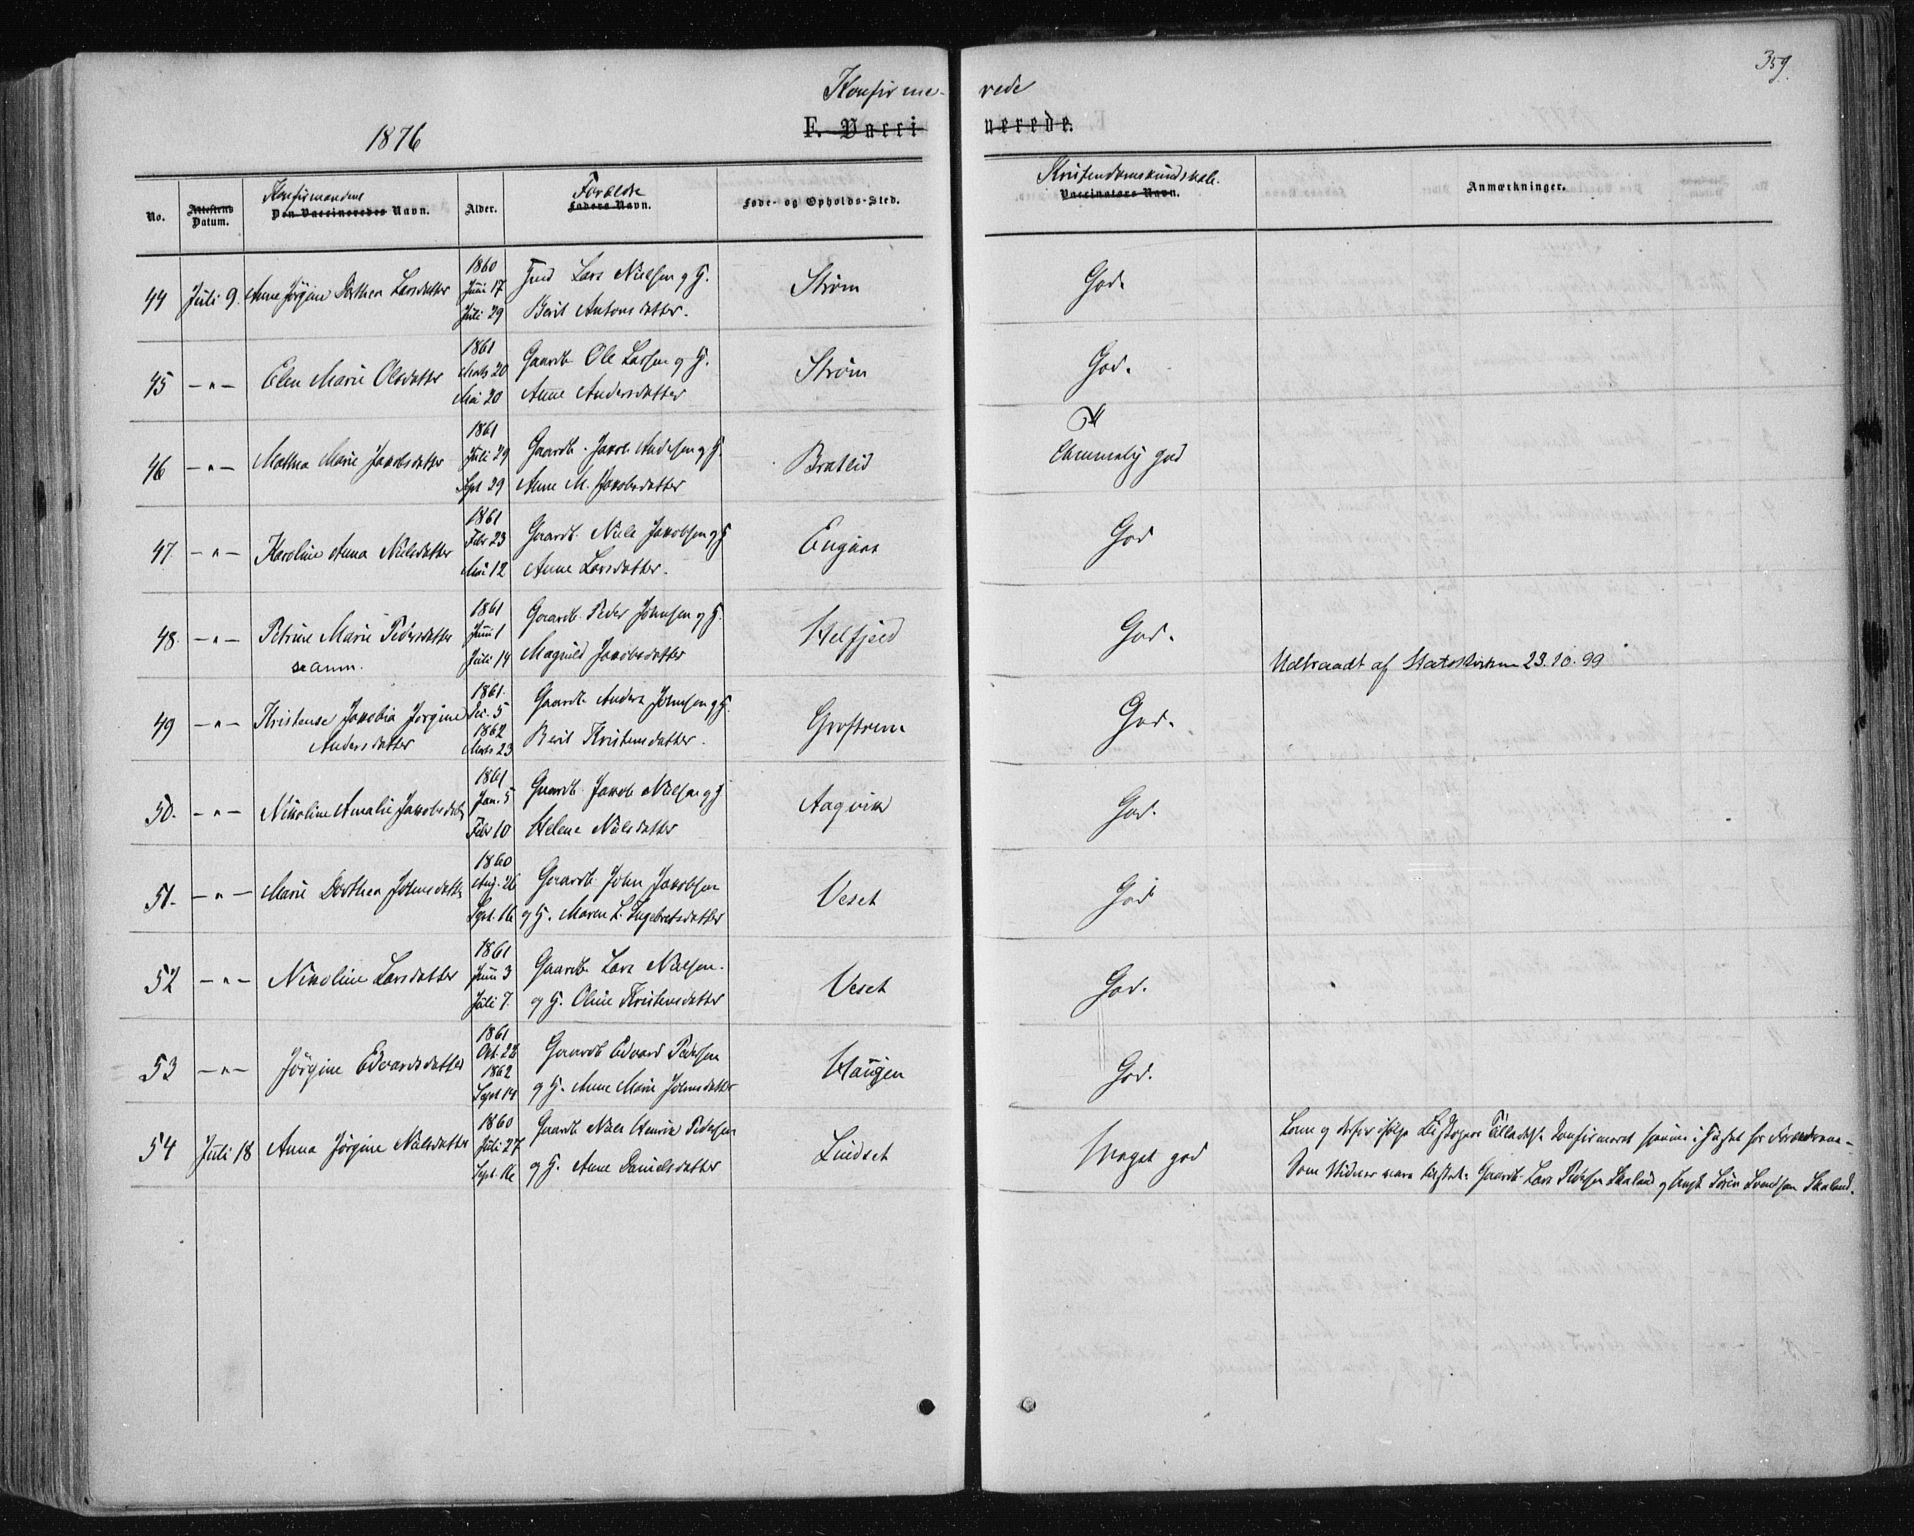 359.
Konfirme- rede
1876
F. Vacci nerede.
No.
Attestens
Datum.
Konfirmandens
Den Vaccineredes Navn.
Alder.
Forældre
Faders Navn.
Føde- og Opholds-Sted.
Kristendomskundskab.
Vaccinators Navn.
Anmærkninger.
44 Juli 9. Anne Jørgine Dorthea Larsdatter
1860
Juni 17
Juli 29
Lars Nielsen og H.
Berit Antonsdatter.
Strøm
God.
45 — " — Elen Marie Olsdatter
1861
Marts 20
Mai 20
Gaardb. Ole Larsen og H.
Anne Andersdatter
Strøm
God.
46 — " — Mathea Marie Jakobsdatter
1861
Juli 29
Sept 29
Gaardb. Jakob Andersen og H.
Anne M. Jakobsdatter
Bratlid
Temmelig god
47. — " — Karoline Anna Nielsdatter
1861
Febr 23
Mai 12
Gaardb. Niels Jakobsen og H
Anne Larsdatter.
Engaas
God
48. — " — Petrine Marie Pedersdatter
se anm.
1861
Juni 1
Juli 14
Gaardb. Peder Johnsen og H.
Magnild Jakobsdatter
Helfjeld
God.
Udtraadt af Statskirken 23.10.99
49 — " — Kristense Jakobia Jørgine
Andersdatter
1861.
Dec. 5
1862
Marts 23
Gaardb. Anders Johnsen og H.
Berit Kristensdatter.
God.
50. — " — Nikoline Amalie Jakobsdatter
1861
Jan. 5
Febr 10
Gaardb. Jakob Nielsen og H
Helene Nielsdatter
Aagvik
God.
51. — " — Marie Dorthea Johnsdatter
1860
Aug. 26
Sept. 16
Gaardb. John Jakobsen
og H. Maren L. Ingebretsdatter
Veset
God
52 — " — Nikoline Larsdatter
1861
Juni 3
Juli 7.
Gaardb. Lars Nielsen.
og H. Oline Kristensdatter
Veset
God.
53 — " — Jørgine Edvardsdatter
1861
Oct. 28
1862
Sept 14
Gaardb Edvard Pedersen
og H. Anne Marie Johnsdatter
Haugen
God.
54 Juli 18 Anna Jørgine Nielsdatter
1860
Juli 27
Sept. 16
Gaardb. Niels Henrik Pedersen
og H. Anne Danielsdatter
Lindset
Meget god
og derfor ifølge Biskopens Tilladelse konfirmeret hjemme i Huset hos Forældrene-
Som Vidner vare tilstede: Gaardb. Lars Pedersen Skaland og Søren Svendsen Skaland.